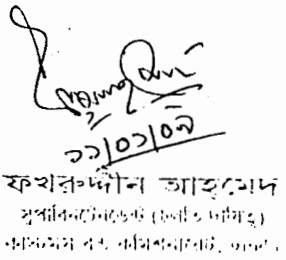 ১১/০১/০৯
ফখরুদ্দীন আহমেদ
সুপারিনটেনডেন্ট (চলতি দায়িত্ব)
কাস্টমস বন্ড কমিশনারেট, ঢাকা।